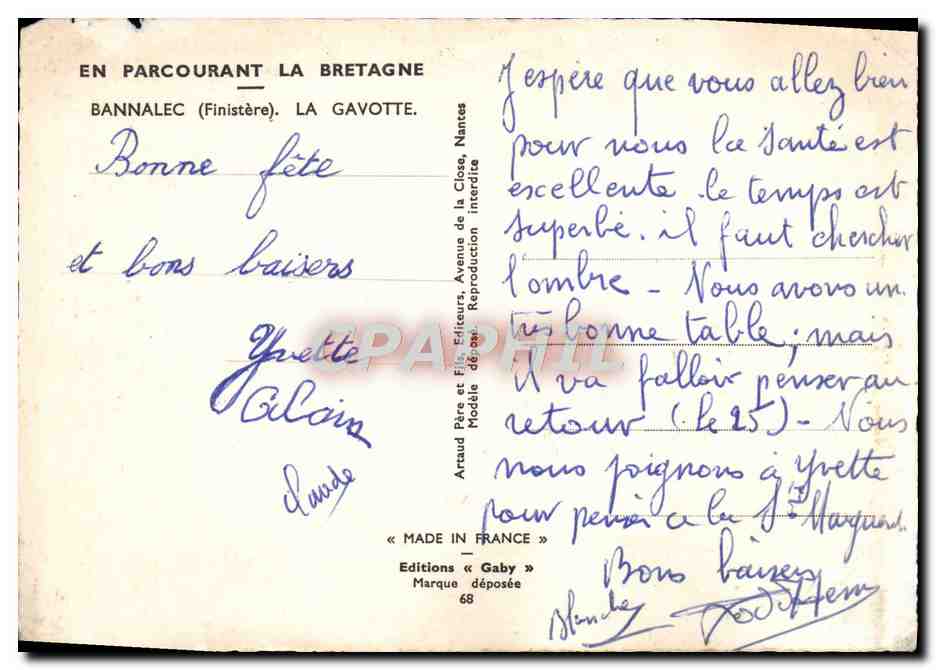 EN PARCOURANT LA BRETAGNE
BANNALEC (Finistère). LA GAVOTTE.
Bonne fête
et bons baisers
Yvette
Alain
Claude
Artaud Père et Fils, Editeurs, Avenue de la Close, Nantes
Modèle déposé. Reproduction interdite
« MADE IN FRANCE »
Editions « Gaby »
Marque déposée
68
J'espère que vous allez bien
pour nous la santé est
excellente. le temps est
superbe. il faut chercher
l'ombre - Nous avons un
très bonne table ; mais
il va falloir penser au
retour (le 25) - Nous
nous joignons à Yvette
pour penser a la Ste
Bons baisers
Blanche
CPAPHIL